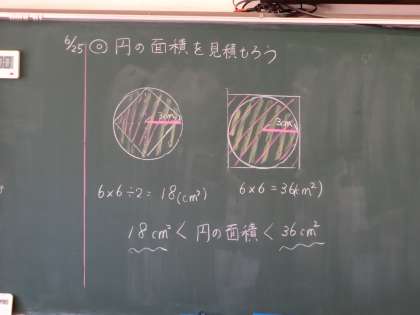 6/25 ◎ 円の面積を見積もろう
3cm
3cm
6×6÷2=18(cm²)
6×6=36(cm²)
18cm² < 円の面積 < 36cm²